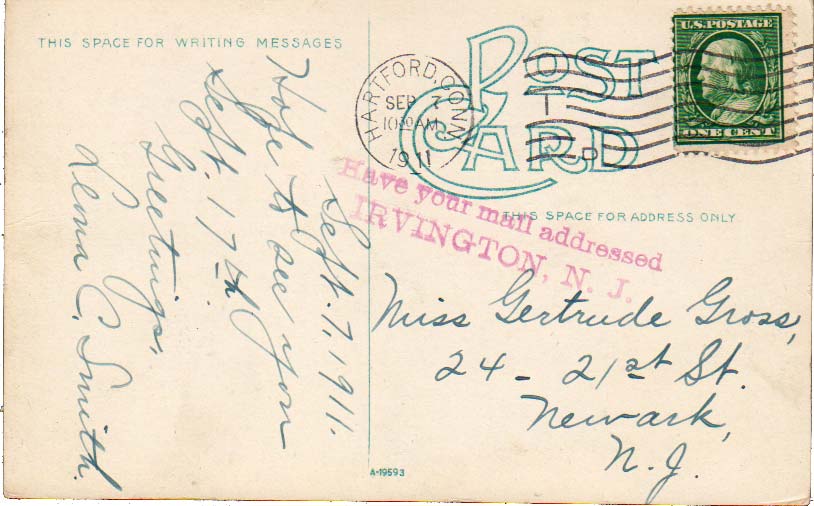 THIS SPACE FOR WRITING MESSAGES
POST
CARD
HARTFORD, CONN.
SEP 7
10 30 AM
1911
U.S. POSTAGE
ONE CENT
Have your mail addressed
IRVINGTON, N. J.
THIS SPACE FOR ADDRESS ONLY
Sept. 7, 1911.
Hope to see you
Sept. 17th.
Greetings,
Leona C. Smith.
Miss Gertrude Gross,
24 - 21st St.
Newark,
N. J.
A-19593